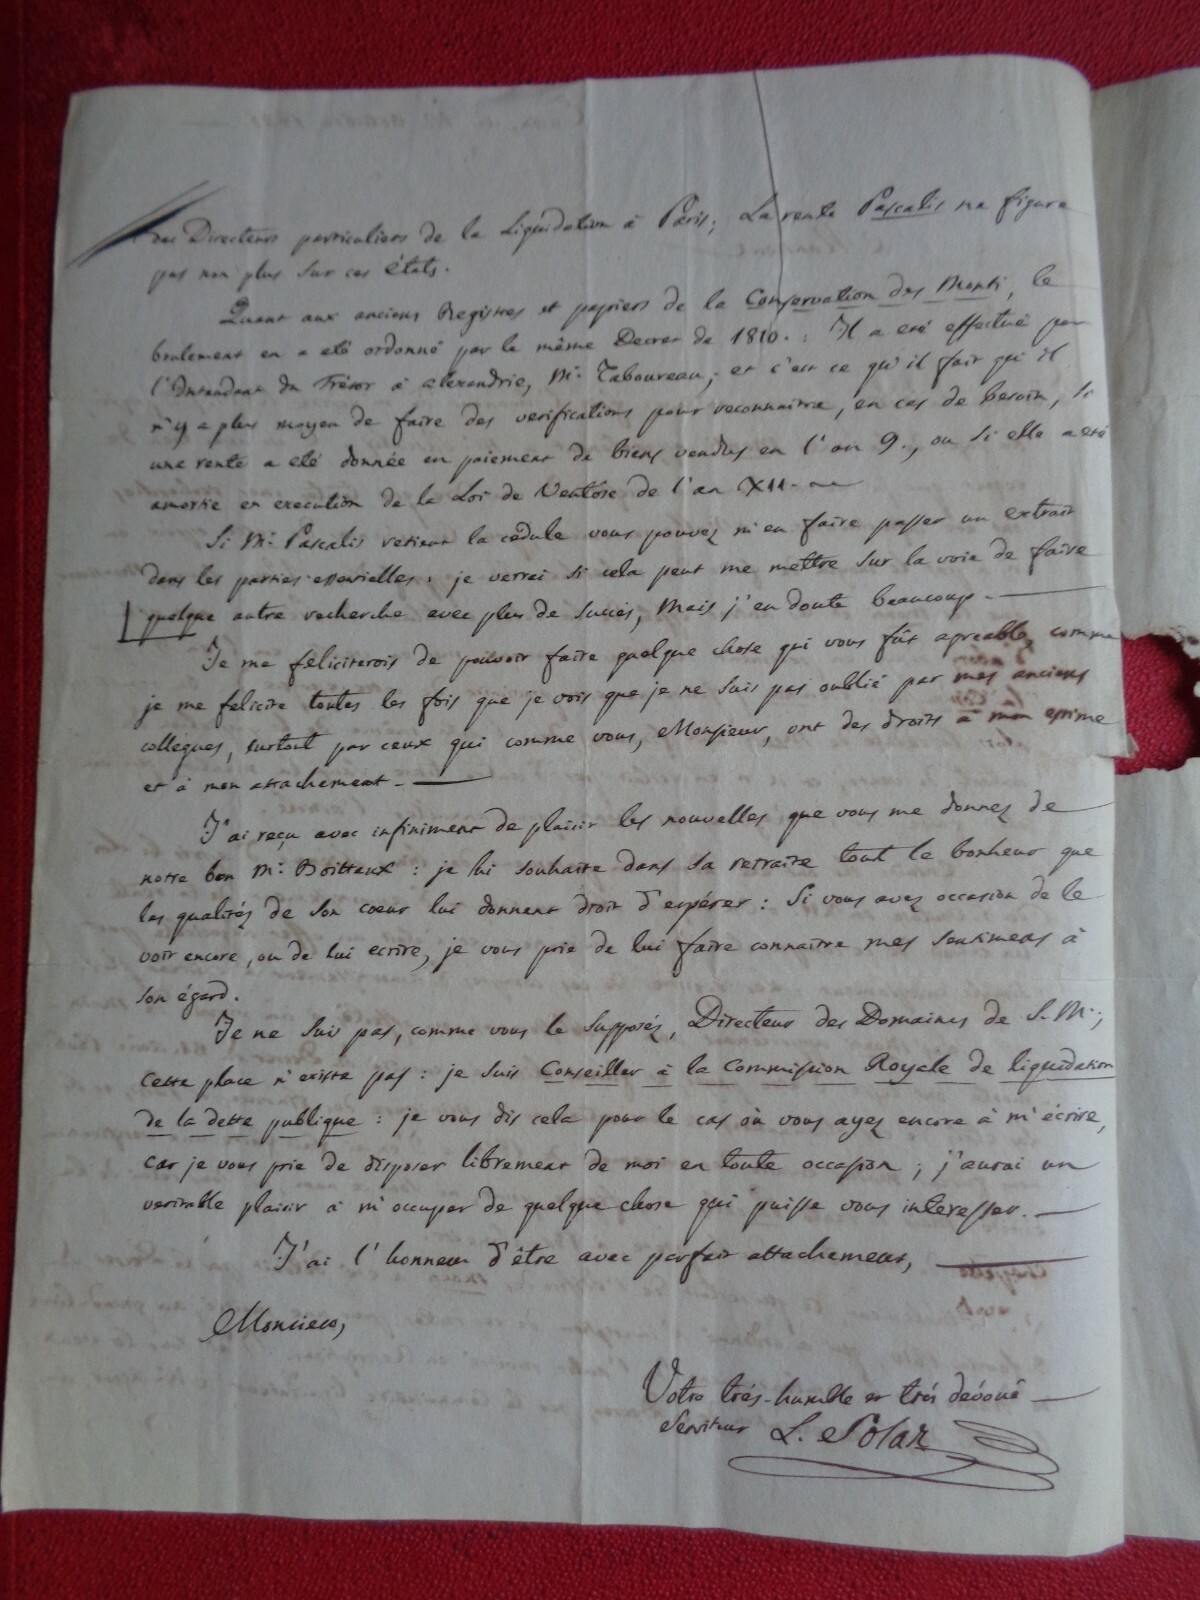 des Directeurs particuliers de la Liquidation à Paris; La rente Pascalis ne figure
pas non plus sur ces états.
Quant aux anciens Registres et papiers de la Conservation des Monti, le
brulement en a été ordonné par le même Decret de 1810. : Il a eté effectué par
l'Intendant du Trésor à Alexandrie, Mr. Taboureau; et c'est ce qu'il fait qu'il
n'y a plus moyen de faire des verifications pour reconnaitre, en cas de besoin, si
une rente a eté donnée en paiement de biens vendus en l'an 9., ou si elle a eté
amortie en execution de la Loi de Ventose de l'an XII.
Si Mr. Pascalis retient la cédule vous pouvez m'en faire passer un extrait
dans les parties essentielles : je verrai si cela peut me mettre sur la voie de faire
quelque autre recherche avec plus de succès, mais j'en doute beaucoup.
Je me feliciterois de pouvoir faire quelque chose qui vous fût agreable, comme
je me felicite toutes les fois que je vois que je ne suis pas oublié par mes anciens
collegues, surtout par ceux qui comme vous, Monsieur, ont des droits à mon estime
et à mon attachement.
J'ai reçu avec infiniment de plaisir les nouvelles que vous me donnez de
notre bon Mr. Boitteux : je lui souhaite dans sa retraite tout le bonheur que
les qualités de son coeur lui donnent droit d'espérer : Si vous avez occasion de le
voir encore, ou de lui ecrire, je vous prie de lui faire connaitre mes sentimens à
son égard.
Je ne suis pas, comme vous le supposés, Directeur des Domaines de S. M.;
cette place n'existe pas : je suis Conseiller à la Commission Royale de liquidation
de la dette publique : je vous dis cela pour le cas où vous ayez encore à m'écrire,
car je vous prie de disposer librement de moi en toute occasion ; j'aurai un
veritable plaisir à m'occuper de quelque chose qui puisse vous interesser.
J'ai l'honneur d'être avec parfait attachement,
Monsieur,
Votre très-humble et très dévoué
Serviteur L. Solar